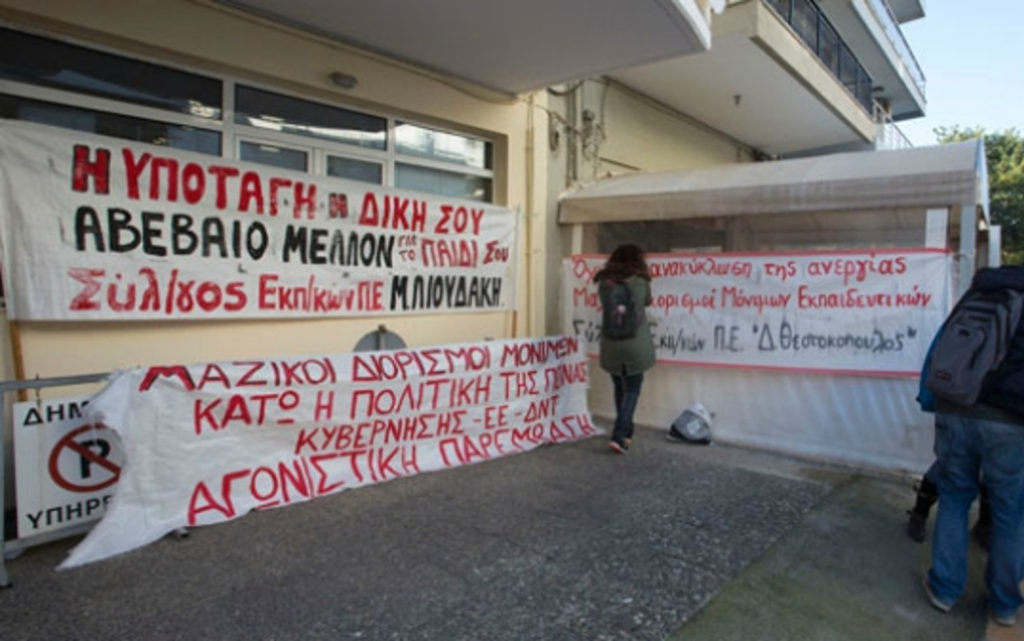 Η ΥΠΟΤΑΓΗ Η ΔΙΚΗ ΣΟΥ
ΑΒΕΒΑΙΟ ΜΕΛΛΟΝ ΓΙΑ ΤΟ ΠΑΙΔΙ ΣΟΥ
Σύλ/γος Εκπ/κών Π.Ε. Μ.ΠΛΟΥΔΑΚΗ
ΜΑΖΙΚΟΙ ΔΙΟΡΙΣΜΟΙ ΜΟΝΙΜΩΝ
ΚΑΤΩ Η ΠΟΛΙΤΙΚΗ ΤΗΣ
ΚΥΒΕΡΝΗΣΗΣ-ΕΕ-ΔΝΤ
ΑΓΩΝΙΣΤΙΚΗ ΠΑΡΕΜΒΑΣΗ
ανακύκλωση της ανεργίας
Μόνιμων Εκπαιδευτικών
Εκπ/κών Π.Ε. "Δ. Θεοτοκόπουλος"
P